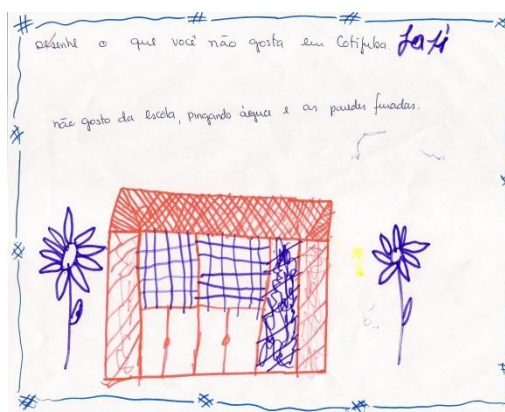 Desenhe o que você não gosta em Cotijuba
não gosto da escola, pingando água e as paredes furadas.